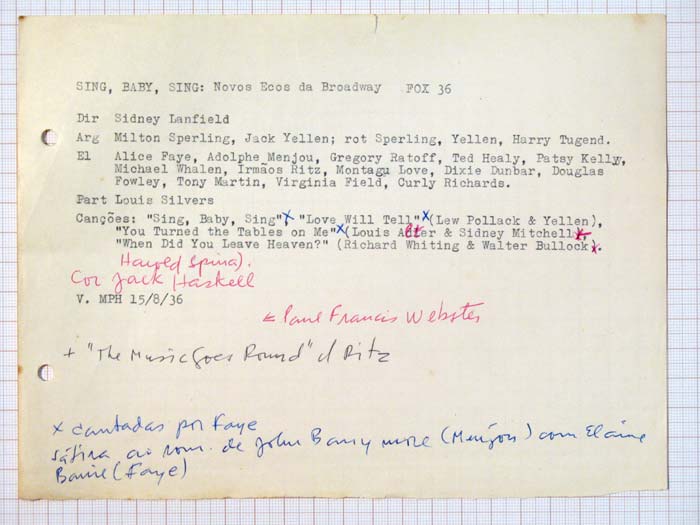 SING, BABY, SING: Novos Ecos da Broadway FOX 36
Dir Sidney Lanfield
Arg Milton Sperling, Jack Yellen; rot Sperling, Yellen, Harry Tugend.
El Alice Faye, Adolphe Menjou, Gregory Ratoff, Ted Healy, Patsy Kelly,
Michael Whalen, Irmãos Ritz, Montagu Love, Dixie Dunbar, Douglas
Fowley, Tony Martin, Virginia Field, Curly Richards.
Part Louis Silvers
Canções: "Sing, Baby, Sing"x "Love Will Tell"x (Lew Pollack & Yellen),
"You Turned the Tables on Me"x (Louis Alter & Sidney Mitchell),
"When Did You Leave Heaven?" (Richard Whiting & Walter Bullock).
Harold Spina).
Cor Jack Haskell
V. MPH 15/8/36
← Paul Francis Webster
+ "The Music Goes Round" c/ Ritz
x cantadas por Faye
sátira ao rom. de John Barrymore (Menjou) com Elaine
Barrie (Faye)